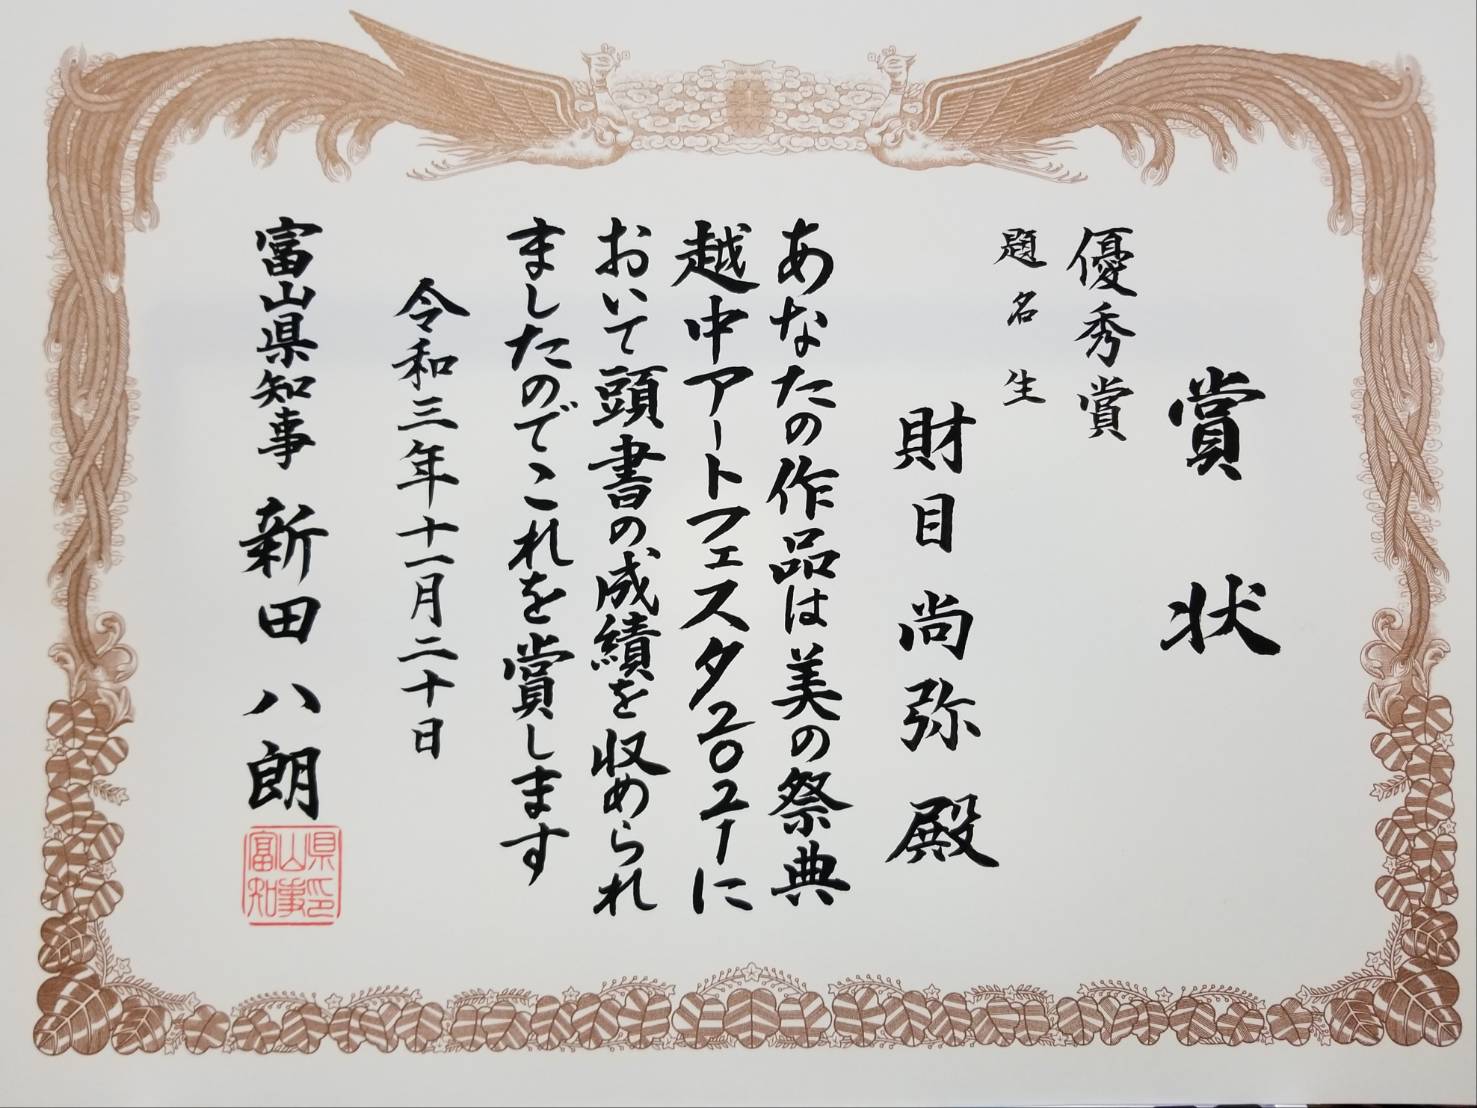 賞状
優秀賞
題名 生
財目尚弥殿
あなたの作品は美の祭典
越中アートフェスタ2021に
おいて頭書の成績を収められ
ましたのでこれを賞します
令和三年十一月二十日
富山県知事 新田八朗
富山県知事印